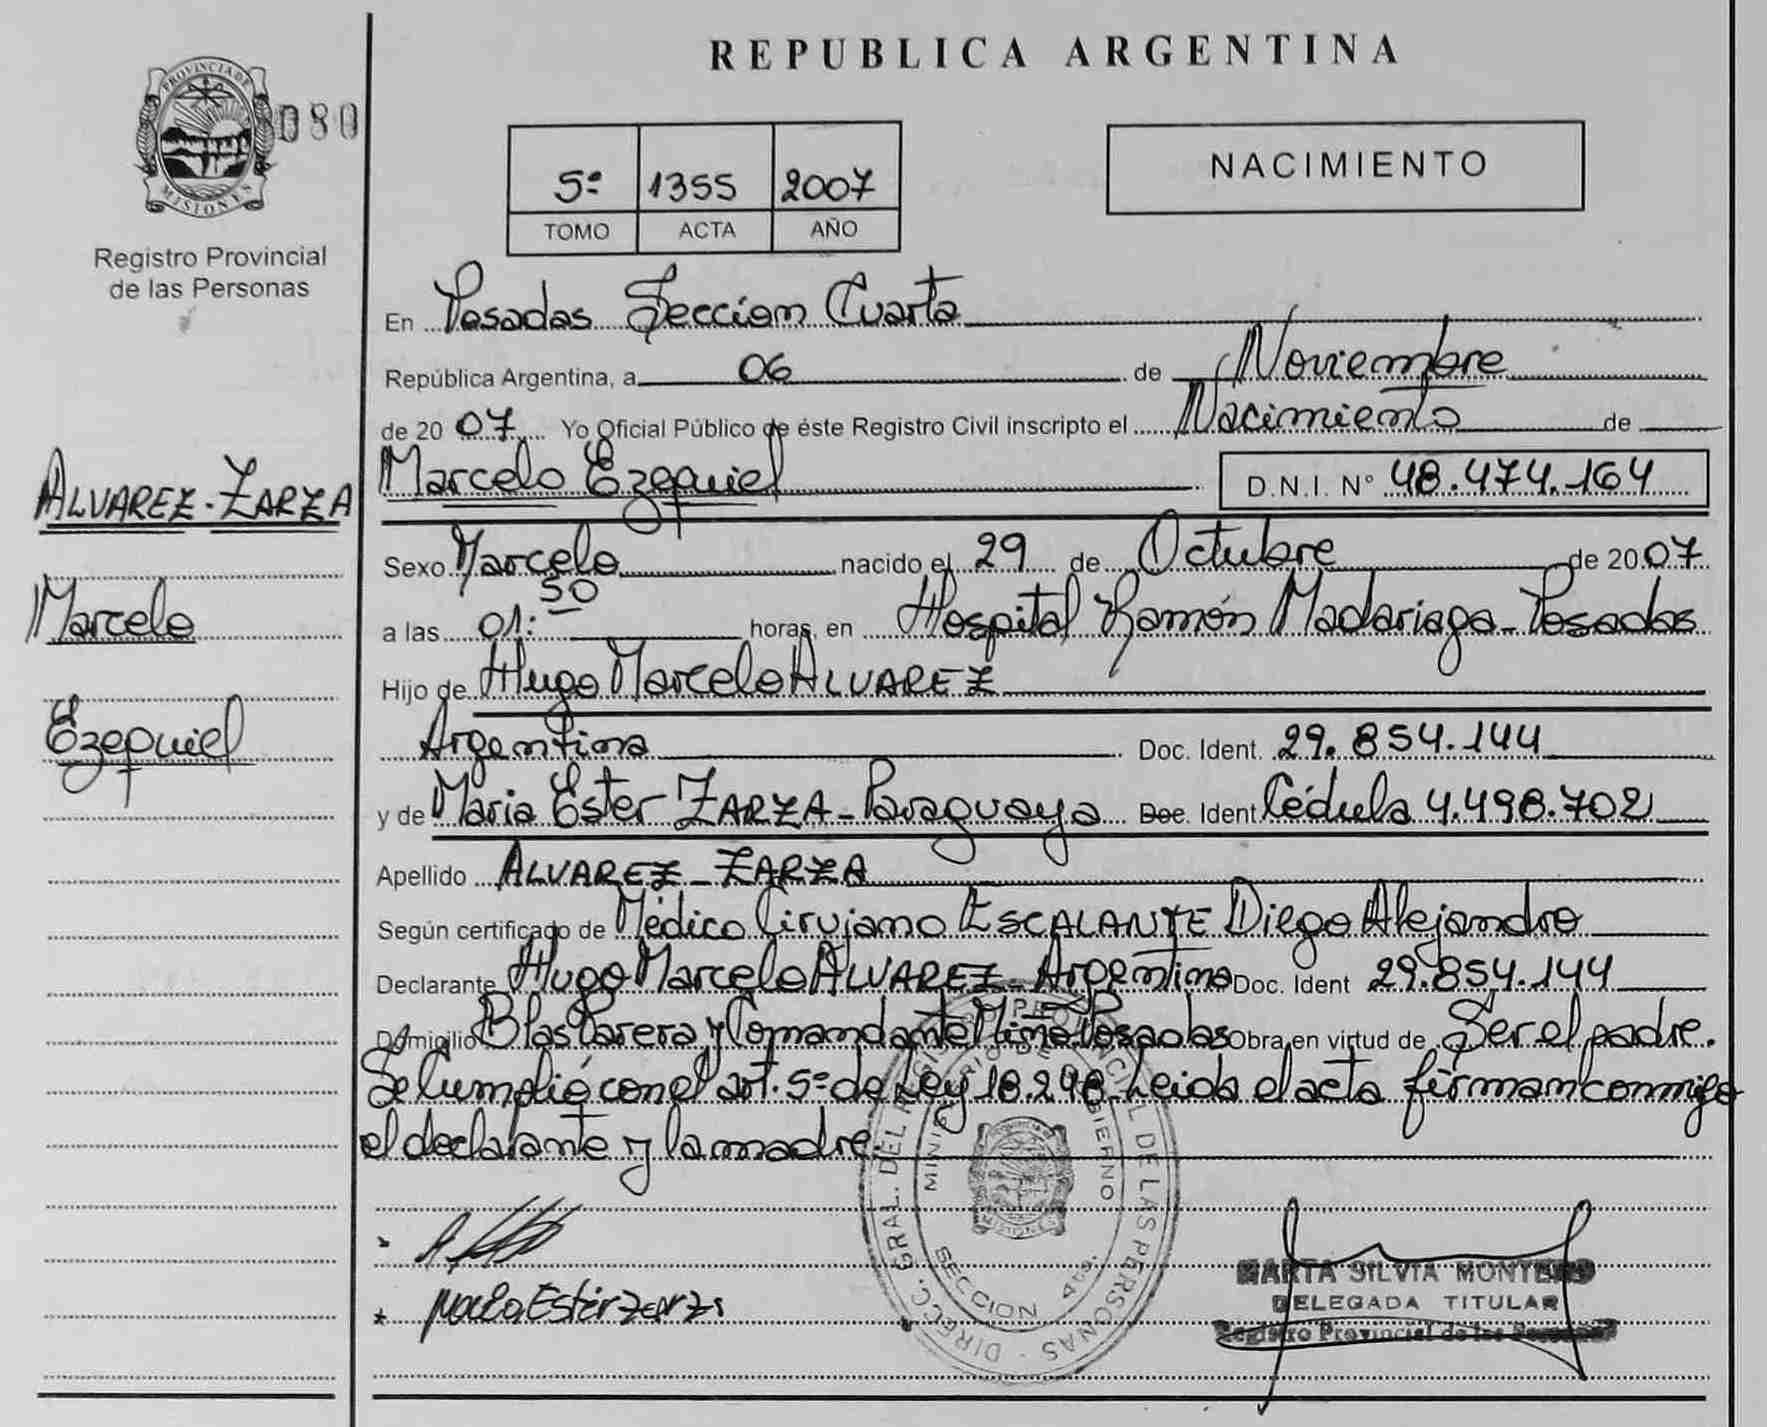 REPUBLICA ARGENTINA
PROVINCIA DE
MISIONES
080
Registro Provincial
de las Personas
5º 1355 2007
TOMO ACTA AÑO
NACIMIENTO
En Posadas Seccion Cuarta
República Argentina, a 06 de Noviembre
de 2007 Yo Oficial Público de éste Registro Civil inscripto el Nacimiento de
Marcelo Ezequiel D.N.I. Nº 48.474.164
ALVAREZ-ZARZA
Marcelo
Ezequiel
Sexo Marcelo nacido el 29 de Octubre de 2007
a las 01:50 horas, en Hospital Ramón Madariaga-Posadas
Hijo de Hugo Marcelo ALVAREZ
Argentino Doc. Ident. 29.854.144
y de Maria Ester ZARZA-Paraguaya Doc. Ident Cédula 4.498.702
Apellido ALVAREZ-ZARZA
Según certificado de Médico Cirujano ESCALANTE Diego Alejandro
Declarante Hugo Marcelo ALVAREZ-Argentino Doc. Ident 29.854.144
Domicilio Blas Parera y Comandante Miño Posadas Obra en virtud de Ser el padre.
Se Cumplió con el art. 5º de Ley 18.248. Leida el acta firman conmigo
el declarante y la madre.
DIRECC. GRAL. DEL REGISTRO PROVINCIAL DE LAS PERSONAS
MINISTERIO DE GOBIERNO
SECCION 4ta.
Maria Ester Zarza
MARTA SILVIA MONTERO
DELEGADA TITULAR
Registro Provincial de las Personas